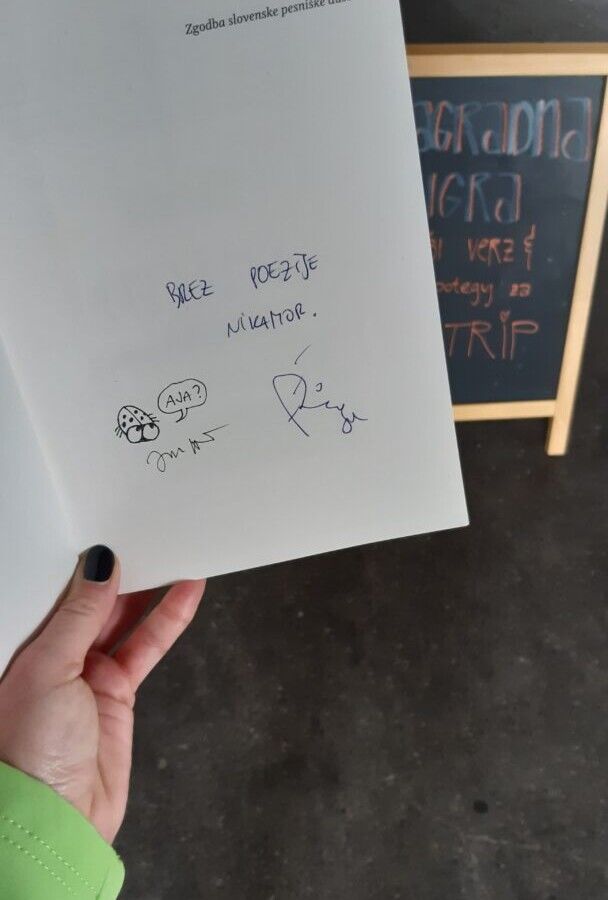 Zgodba slovenske pesniške
BREZ POEZIJE
NIKAMOR.
AJA?
AGRADNA
IGRA
VERZ &
za
TRIP